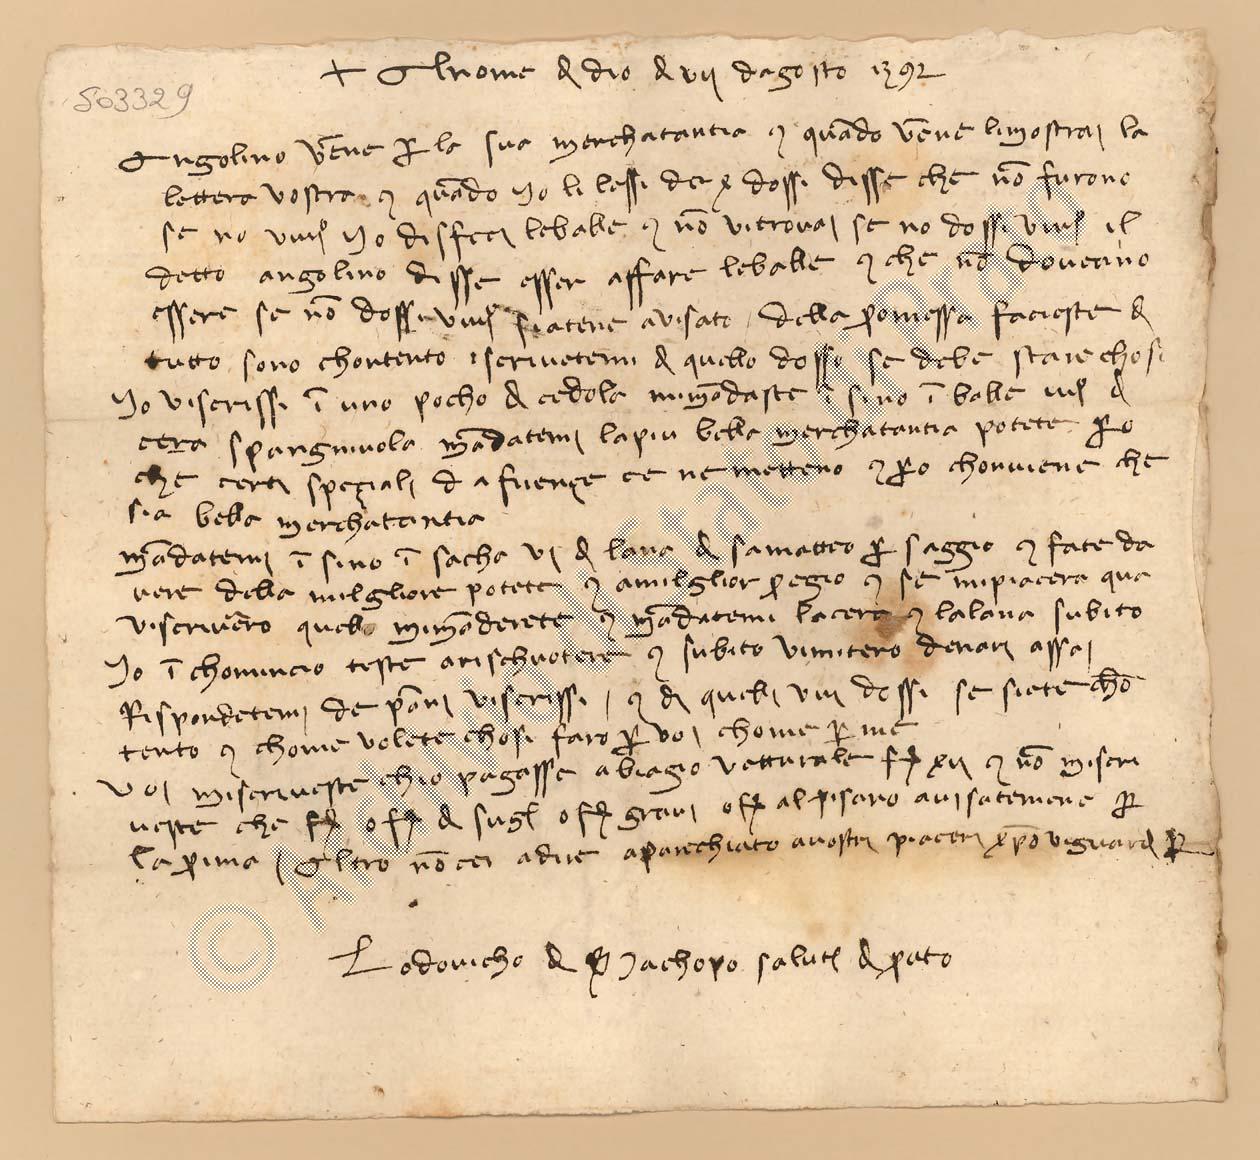 503329
+ Al nome di dio di VII dagosto 1392
Angolino vene per la sua merchatantia e quando vene li mostrai la
lettera vostra e quando io li lessi de X dossi disse che non furono
se no VIIII io disfeci le balle e non vi trovai se no dossi VIIII il
detto angolino disse esser affare le balle e che non doveano
essere se non dossi VIIII siatene avisato della promessa facieste di
tutto sono chontento iscrivetemi di quello dosso se debe stare chosi
Io vi scrissi in uno pocho di cedola mi mandaste in sino in balle IIII di
cera spangniuola mandatemi la piu bella merchatantia potete pero
che certi speziali da firenze ce ne metteno e pero chonviene che
sia bella merchatantia
mandatemi in sino in sacha VI di lana di samatteo per saggio e fate da
vere della milgliore potete e a milglior pregio e se mi piacera qua
vi scrivero quello mi manderete e mandatemi la cera e la lana subito
Io in chomincio teste a rischuotere e subito vi mitero denari assai
Rispondetemi de panni vi scrissi e di quelli VIIII dossi se siete chon
tento e chome volete chosi faro per voi chome per me
Voi mi scriveste chio pagasse a biagio vetturale f XII e non mi scri
veste che f o f di sugl o f gravi o f al pisano avisatemene per
la prima Altro non cei a dire aparechiato a vostri piaceri Cristo vi guardi per
Lodovicho di ser Iachopo saluti di prato